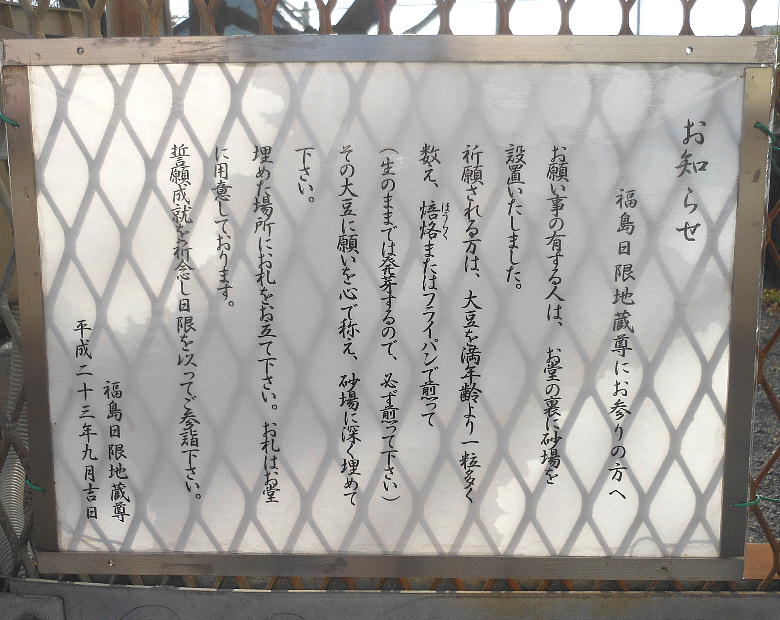 お知らせ
福島日限地蔵尊にお参りの方へ
お願い事の有する人は、お堂の裏に砂場を
設置いたしました。
祈願される方は、大豆を満年齢より一粒多く
数え、焙烙またはフライパンで煎って
ほうろく
(生のままでは発芽するので、必ず煎って下さい)
その大豆に願いを心で称え、砂場に深く埋めて
下さい。
埋めた場所にお札をお立て下さい。お札はお堂
に用意しております。
誓願成就を祈念し日限を以ってご参詣下さい。
福島日限地蔵尊
平成二十三年九月吉日